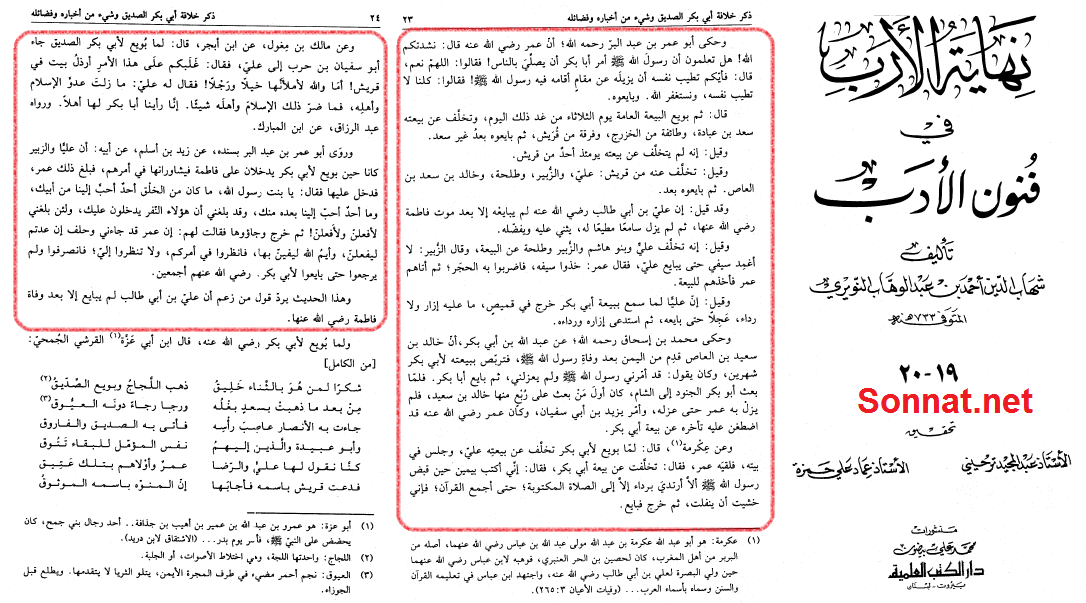 نهاية الأرب
في
فنون الأدب
تأليف
شهاب الدين أحمد بن عبد الوهاب النويري
المتوفى ٧٣٣ هـ
١٩-٢٠
Sonnat.net
تحقيق
الأستاذ عبد المجيد ترحيني
الأستاذ عماد علي حمزة
منشورات
محمد علي بيضون
دار الكتب العلمية
بيروت - لبنان
ذكر خلافة أبي بكر الصديق وشيء من أخباره وفضائله
٢٣
وحكى أبو عمر بن عبد البرّ رحمه الله؛ أنّ عمر رضي الله عنه قال: نشدتكم
الله! هل تعلمون أن رسول الله ﷺ أمر أبا بكر أن يصلّي بالناس! فقالوا: اللهمّ نعم،
قال: فأيّكم تطيب نفسه أن يزيله عن مقامٍ أقامه فيه رسول الله ﷺ! فقالوا: كلنا لا
تطيب نفسه، ونستغفر الله. وبايعوه.
قال: ثم بويع البيعة العامة يوم الثلاثاء من غد ذلك اليوم، وتخلّف عن بيعته
سعد بن عبادة، وطائفة من الخزرج، وفرقة من قُريش، ثم بايعوه بعدُ غير سعد.
وقيل: إنه لم يتخلّف عن بيعته يومئذ أحدٌ من قريش.
وقيل: تخلّف عنه من قريش: عليّ، والزُّبير، وطلحة، وخالد بن سعد بن
العاص. ثم بايعوه بعد.
وقد قيل: إن عليّ بن أبي طالب رضي الله عنه لم يبايعْه إلا بعد موت فاطمة
رضي الله عنها، ثم لم يزل سامعاً مطيعاً له، يثني عليه ويفضّله.
وقيل: إنه تخلّف عليٌّ وبنو هاشم والزُّبير وطلحة عن البيعة، وقال الزُّبير: لا
أغمِد سيفي حتى يبايع عليّ، فقال عمر: خذوا سيفه، فاضربوا به الحجَر؛ ثم أتاهم
عمر فأخذهم للبيعة.
وقيل: إنّ عليًّا لما سمع ببيعة أبي بكر خرج في قميص، ما عليه إزار ولا
رداء، عَجِلاً حتى بايعه، ثم استدعى إزاره ورداءه.
وحكى محمد بن إسحاق رحمه الله؛ عن عبد الله بن أبي بكر، أنّ خالد بن
سعيد بن العاص قدِم من اليمن بعد وفاة رسول الله ﷺ، فتربّص ببيعته لأبي بكر
شهرين، وكان يقول: قد أمّرني رسول الله ﷺ ولم يعزلني، ثم بايع أبا بكر. فلمّا
بعث أبو بكر الجنود إلى الشام، كان أولَ مَنْ بعث على رُبْعٍ منها خالد بن سعيد، فلم
يزلْ به عمر حتى عزله، وأمّر يزيد بن أبي سفيان، وكان عمر رضي الله عنه قد
اضطغن عليه تأخره عن بيعة أبي بكر.
وعن عِكْرمة(١)، قال: لمّا بويع لأبي بكر تخلّف عن بيعته عليّ، وجلس في
بيته، فلقيَه عمر، فقال: تخلّفت عن بيعة أبي بكر، فقال: إنّي آليت بيمين حين قبض
رسول الله ﷺ ألاّ أرتديَ برداء إلاّ إلى الصلاة المكتوبة؛ حتى أجمع القرآن؛ فإني
خشيت أن ينفلت، ثم خرج فبايع.
(١) عكرمة: هو أبو عبد الله عكرمة بن عبد الله مولى عبد الله بن عباس رضي الله عنهما، أصله من
البربر من أهل المغرب، كان لحصين بن الحر العنبري، فوهبه لابن عباس رضي الله عنهما
حين ولي البصرة لعلي بن أبي طالب رضي الله عنه، واجتهد ابن عباس في تعليمه القرآن
والسنن وسماه بأسماء العرب... (وفيات الأعيان ٣: ٢٦٥).
٢٤
ذكر خلافة أبي بكر الصديق وشيء من أخباره وفضائله
وعن مالك بن مِغول، عن ابن أبجر، قال: لما بُويع لأبي بكر الصديق جاء
أبو سفيان بن حرب إلى عليّ، فقال: غلبكم على هذا الأمر أرذلُ بيت في
قريش! أمَا والله لأملأنّها خيلاً ورَجْلاً! فقال له عليّ: ما زلتَ عدوَّ الإسلام
وأهلِه، فما ضرّ ذلك الإسلامَ وأهلَه شيئًا. إنَّا رأينا أبا بكر لها أهلاً. ورواه
عبد الرزاق، عن ابن المبارك.
وروَى أبو عمر بن عبد البر بسنده، عن زيد بن أسلم، عن أبيه: أن عليًّا والزبير
كانا حين بويع لأبي بكر يدخلان على فاطمة فيشاورانها في أمرهم، فبلغ ذلك عمر،
فدخل عليها فقال: يا بنت رسول الله، ما كان من الخلْق أحدٌ أحبَّ إلينا من أبيك،
وما أحدٌ أحبّ إلينا بعده منك، وقد بلغني أن هؤلاء النّفر يدخلون عليك، ولئن بلغني
لأفعلنّ ولأفعلنّ! ثم خرج وجاؤوها فقالت لهم: إن عمر قد جاءني وحلف إن عدتم
ليفعلنّ، وأيمُ الله ليفينّ بها، فانظروا في أمركم، ولا تنظروا إليّ؛ فانصرفوا ولم
يرجعوا حتى بايعوا لأبي بكر. رضي الله عنهم أجمعين.
وهذا الحديث يردّ قول من زعم أن علي بن أبي طالب لم يبايع إلا بعد وفاة
فاطمة رضي الله عنها.
ولما بُويع لأبي بكر رضي الله عنه، قال ابن أبي عَزّة(١) القرشي الجُمحيّ:
[من الكامل]
شكرًا لمن هُوَ بالثّناء خَلِيقُ ذهب اللّجاجُ وبويع الصّدّيقُ(٢)
مِنْ بعد ما ذهبتْ بسعدٍ بغْلُه ورجا رجاءً دونَه العيُّوق(٣)
جاءت به الأنصار عاصِبَ رأسِه فأتى به الصديق والفاروق
وأبو عبيدة والّذين إليهمُ نفس المؤمّل للبقاء تَتُوق
كنّا نقول لها عليٌّ والرِّضا عمرٌ وأوْلاهم بتلك عَتِيق
فدعت قريش باسمه فأجابها إن المنوّه باسمه الموثوقُ
(١) أبو عزة: هو عمرو بن عبد الله بن عمير بن أهيب بن حذافة.. أحد رجال بني جمح، كان
يحضض على النبي ﷺ، فأسر يوم بدر... (الاشتقاق لابن دريد).
(٢) اللجاج: واحدتها اللجة، وهي اختلاط الأصوات، أو الجلبة.
(٣) العيوق: نجم أحمر مضيء في طرف المجرة الأيمن، يتلو الثريا لا يتقدمها. ويطلع قبل
الجوزاء.